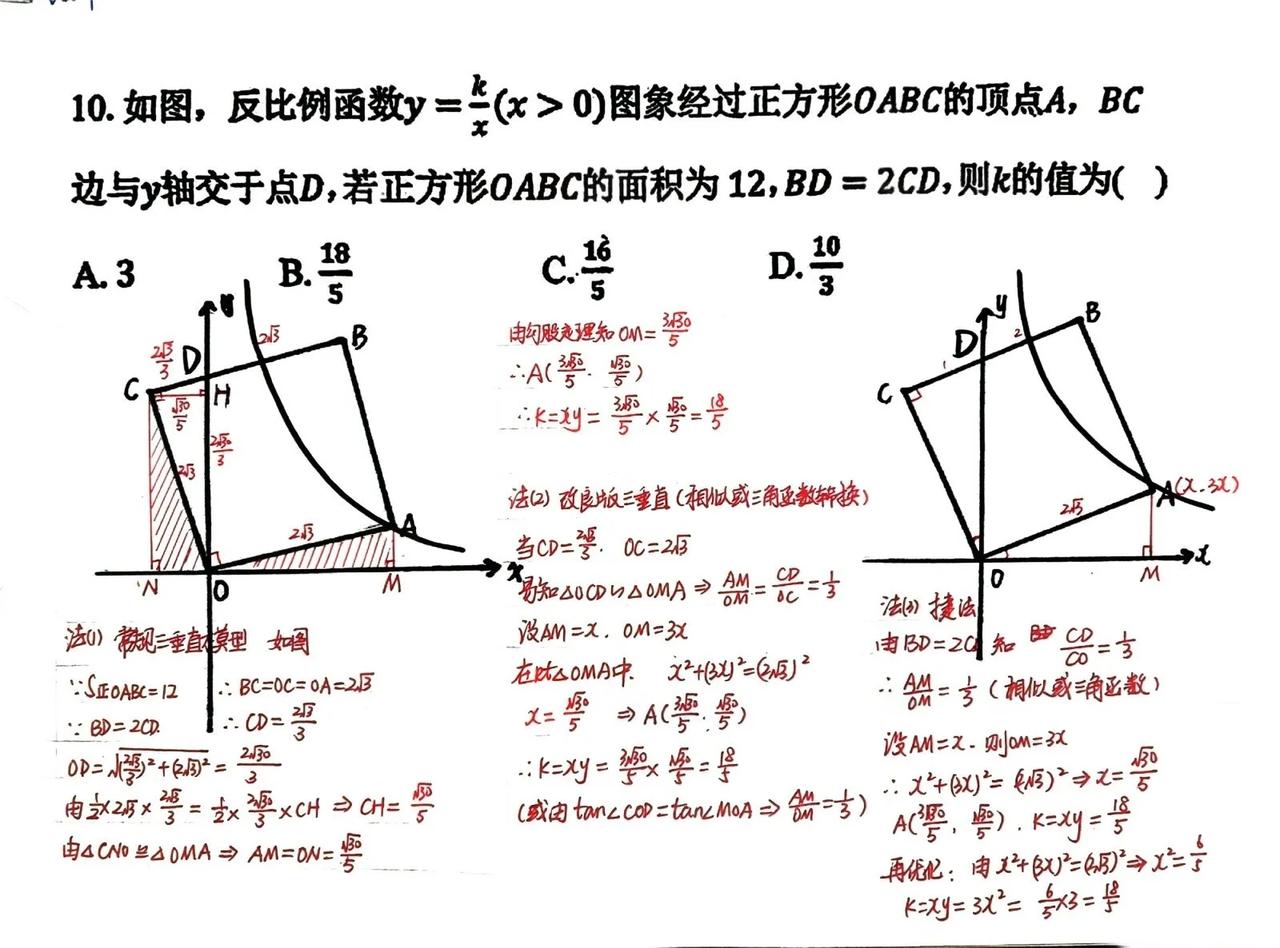 10. 如图，反比例函数y=k/x(x>0)图象经过正方形OABC的顶点A，BC
边与y轴交于点D,若正方形OABC的面积为 12,BD=2CD,则k的值为( )
A. 3 B. 18/5 C. 16/5 D. 10/3
y
2√3
B
2√3/3
D
C
H
√30/5
2√30/3
2√3
2√3
A
N
O
M
x
法(1) 常规三垂直模型 如图
∵S正OABC=12 ∴BC=OC=OA=2√3
∵BD=2CD. ∴CD=2√3/3
OD=√((2√3/3)²+(2√3)²)=2√30/3
由1/2×2√3×2√3/3=1/2×2√30/3×CH ⇒ CH=√30/5
由△CNO≌△OMA ⇒ AM=ON=√30/5
由勾股定理知OM=3√30/5
∴A(3√30/5, √30/5)
∴K=xy=3√30/5×√30/5=18/5
法(2) 改良版三垂直(相似或三角函数转换)
当CD=2√3/3. OC=2√3
易知△OCD∽△OMA ⇒ AM/OM=CD/OC=1/3
设AM=x. OM=3x
在Rt△OMA中. x²+(3x)²=(2√3)²
x=√30/5 ⇒ A(3√30/5, √30/5)
∴K=xy=3√30/5×√30/5=18/5
(或由tan∠COD=tan∠MOA ⇒ AM/OM=1/3)
y
B
2
D
1
C
A(x.3x)
2√3
O
M
x
法(3) 捷法
由BD=2CD知 CD/CO=1/3
∴AM/OM=1/3(相似或三角函数)
设AM=x. 则OM=3x
∴x²+(3x)²=(2√3)² ⇒ x=√30/5
A(3√30/5, √30/5). K=xy=18/5
再优化: 由x²+(3x)²=(2√3)² ⇒ x²=6/5
K=xy=3x²=6/5×3=18/5